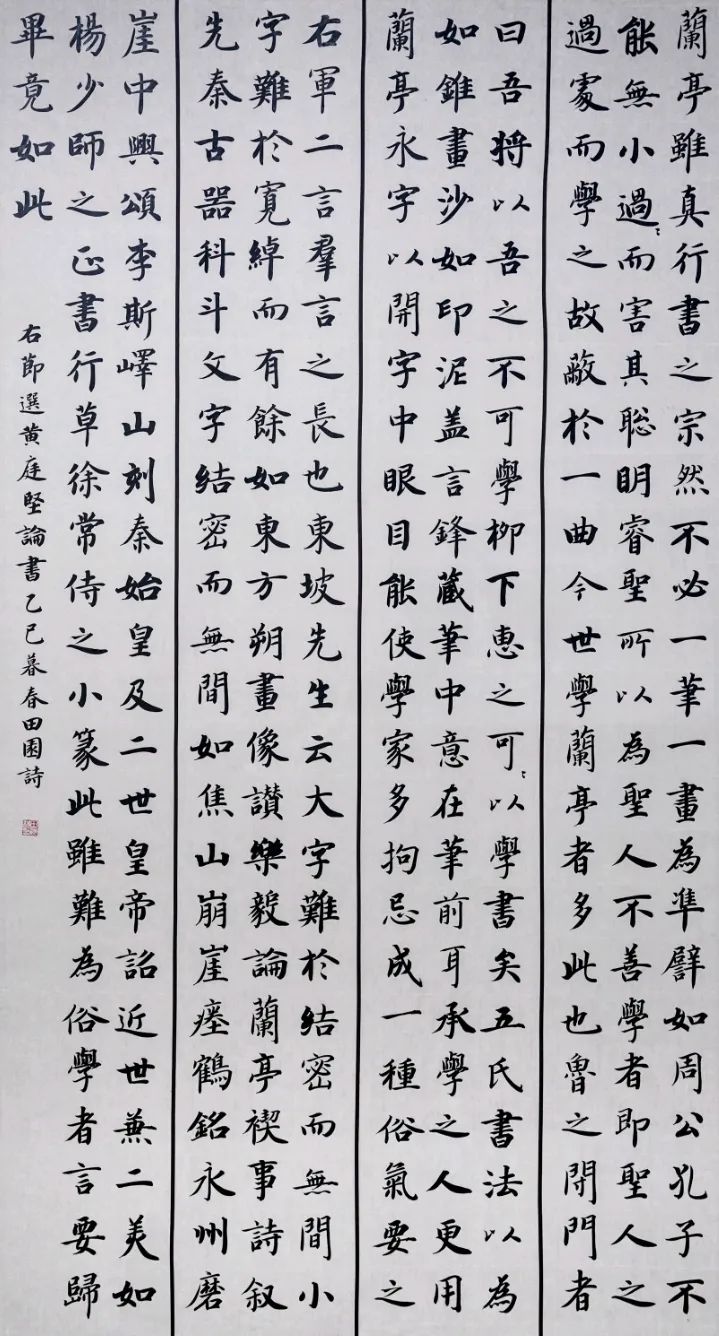 蘭亭雖真行書之宗然不必一筆一畫為準譬如周公孔子不
能無小過過而害其聪明睿聖所以為聖人不善學者即聖人之
過處而學之故蔽於一曲今世學蘭亭者多此也魯之閉門者
曰吾将以吾之不可學柳下惠之可可以學書矣五氏書法以為
如錐畫沙如印泥盖言鋒藏筆中意在筆前耳承學之人更用
蘭亭永字以開字中眼目能使學家多拘忌成一種俗氣要之
右軍二言羣言之長也東坡先生云大字難於結密而無間小
字難於寬綽而有餘如東方朔畫像讃樂毅論蘭亭禊事詩叙
先秦古器科斗文字結密而無間如焦山崩崖瘞鶴銘永州磨
崖中興頌李斯嶧山刻秦始皇及二世皇帝詔近世兼二美如
楊少師之正書行草徐常侍之小篆此雖難為俗學者言要歸
畢竟如此
右節選黄庭堅論書乙巳暮春田園詩